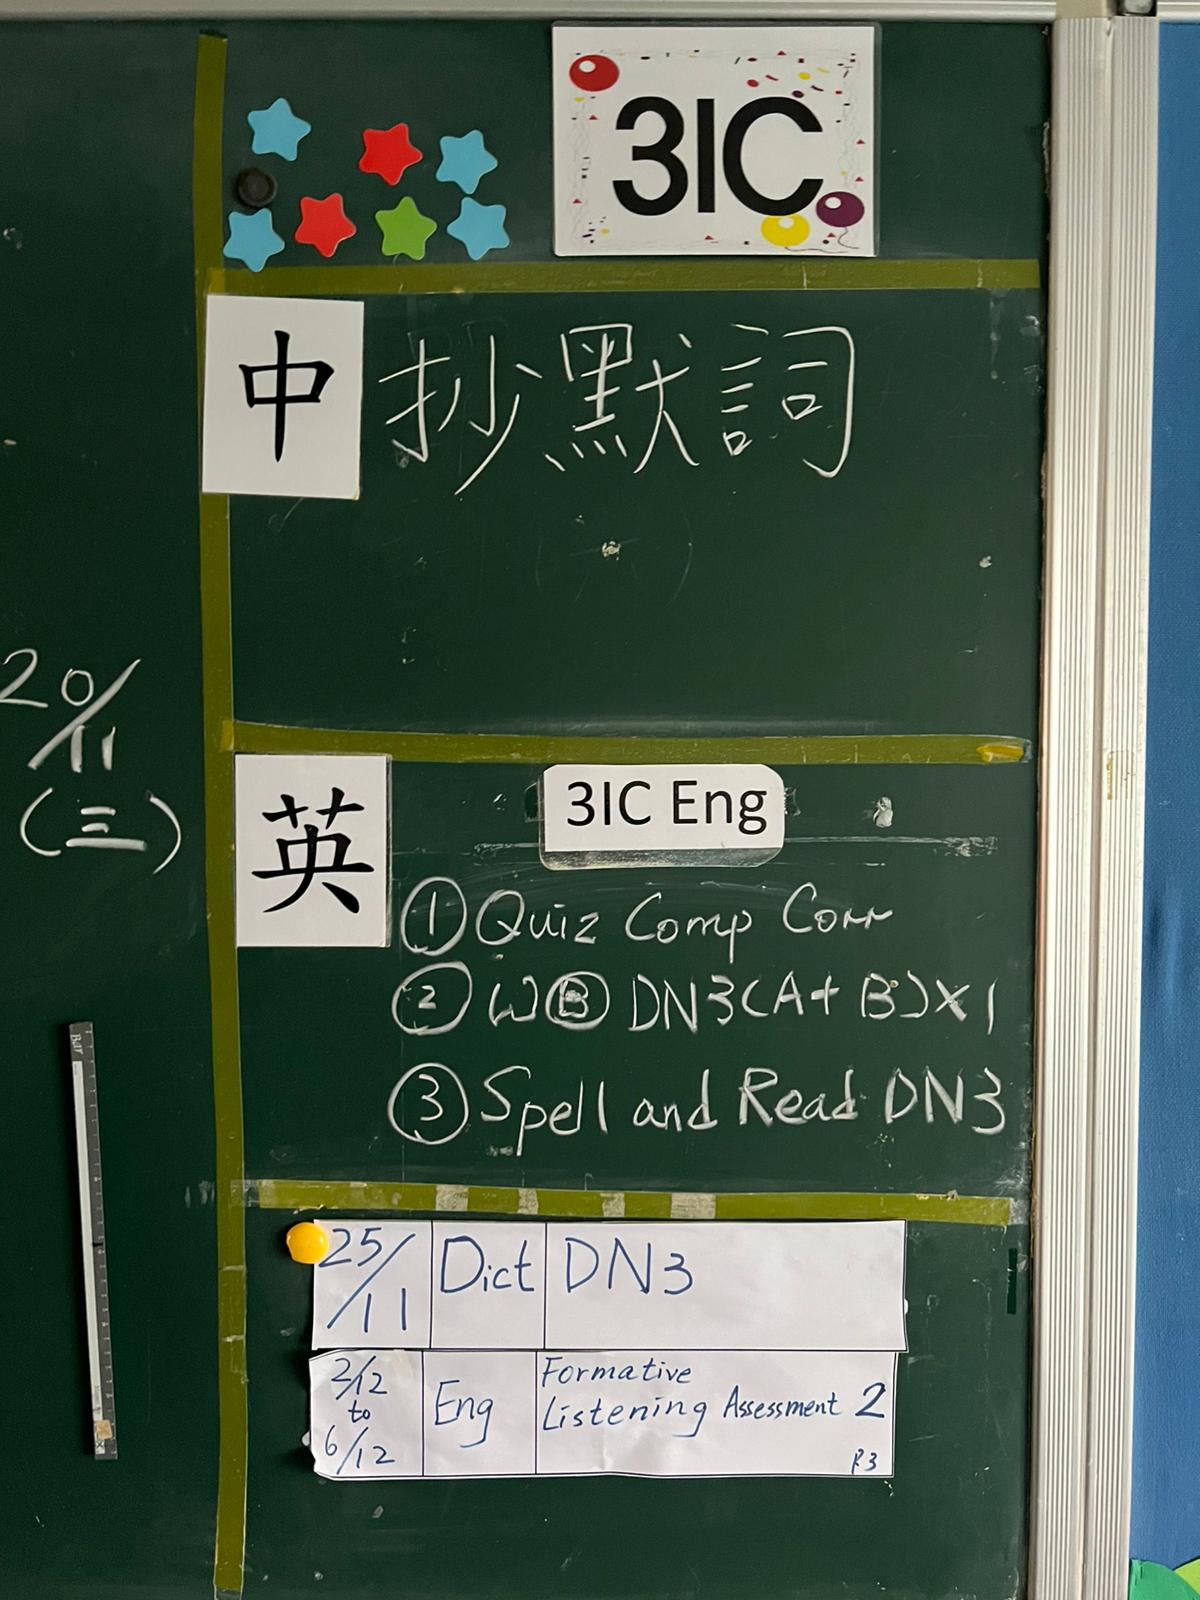 3IC
中
抄默詞
20/11
(三)
英
3IC Eng
① Quiz Comp Corr
② WⒷ DN3(A+B)×1
③ Spell and Read DN3
25/11 Dict DN3
2/12 to 6/12 Eng Formative Listening Assessment 2
P.3